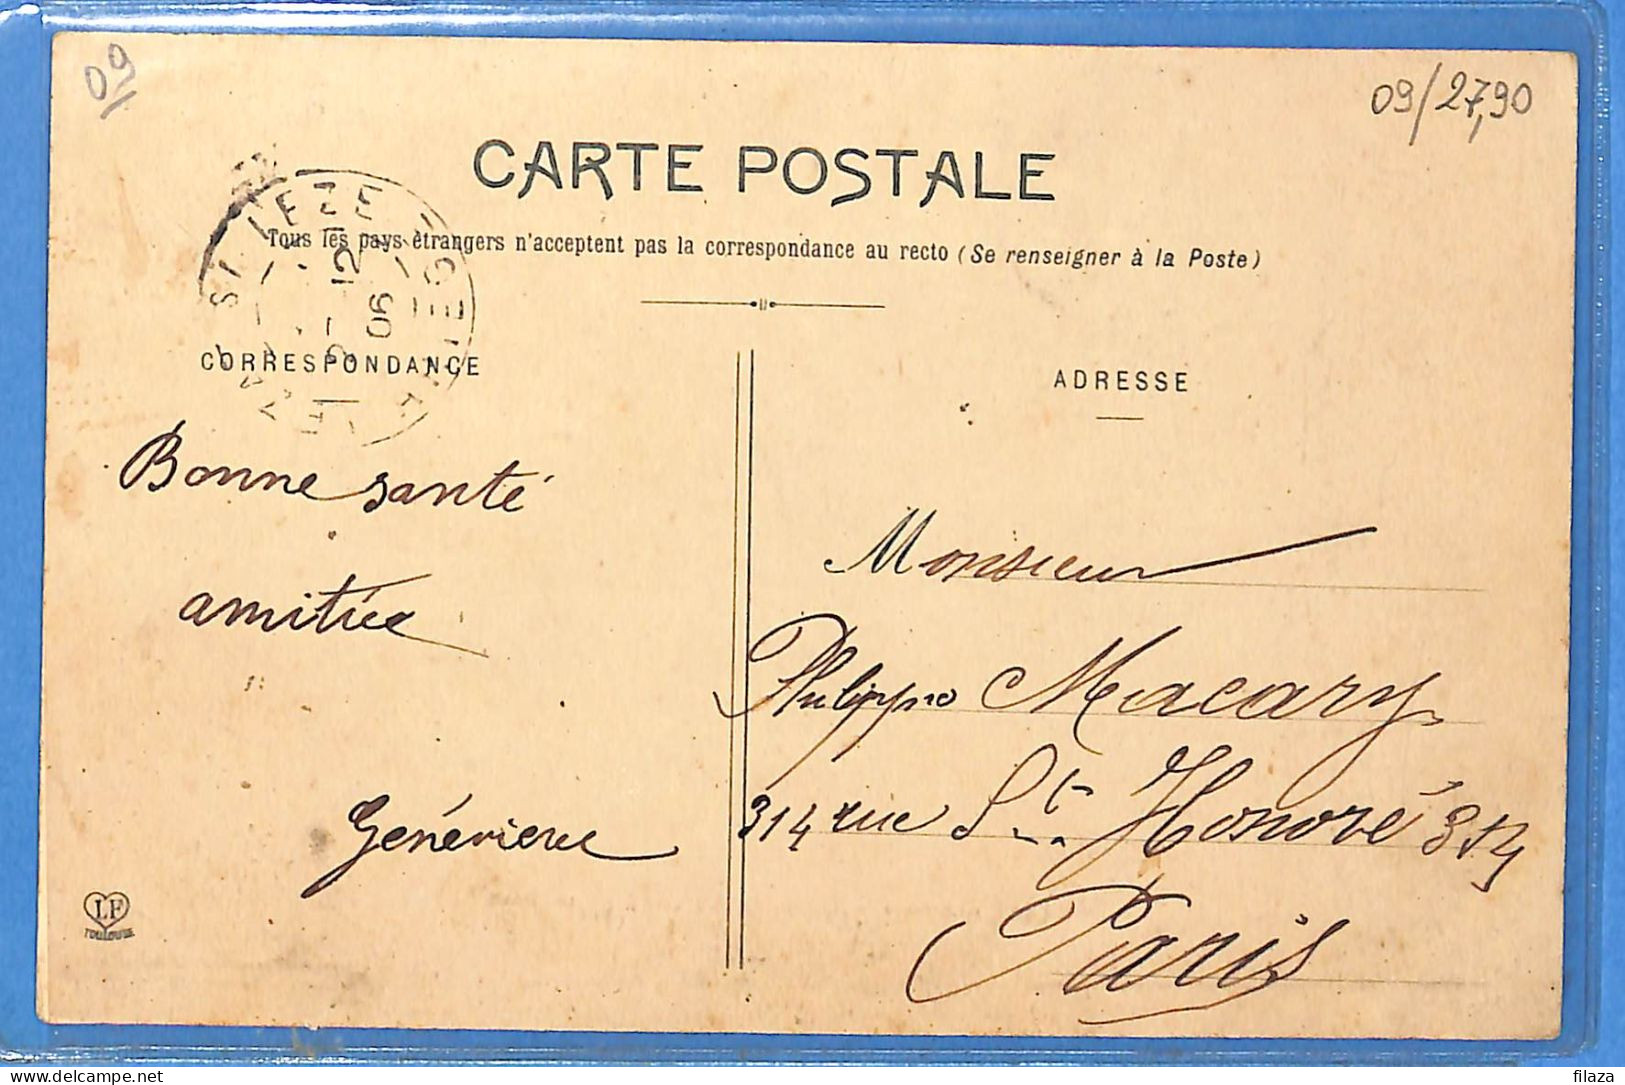 09
09/27,90
CARTE POSTALE
Tous les pays étrangers n'acceptent pas la correspondance au recto (Se renseigner à la Poste)
ST LEZE
12
90
CORRESPONDANCE
ADRESSE
Bonne santé
amitiée
Genévieve
Monsieur
Philippe Macary
314 rue St. Honoré 314
Paris
LF
TOULOUSE
www.delcampe.net
filaza